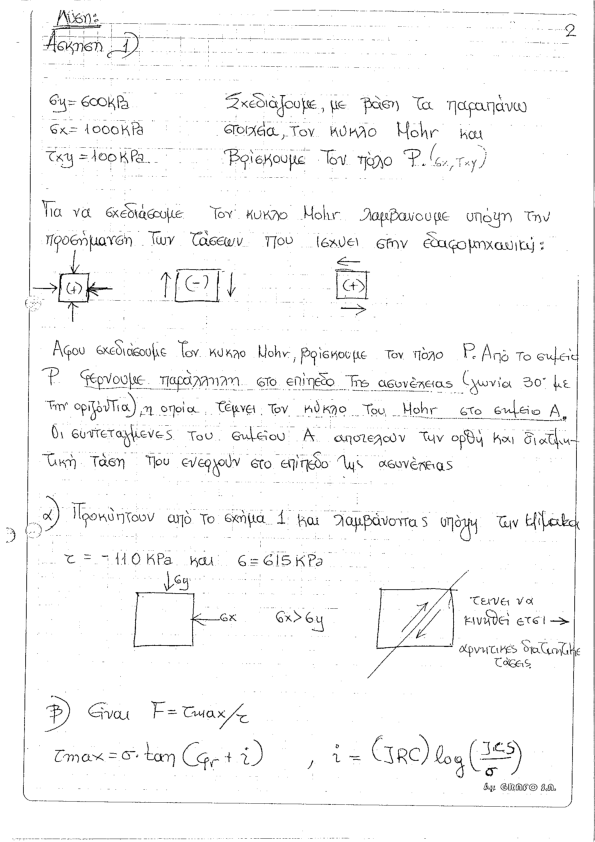 Λύση:
2
Άσκηση 1)
σy = 600 kPa
Σχεδιάζουμε, με βάση τα παραπάνω
σx = 1000 kPa
στοιχεία, τον κύκλο Mohr και
τxy = 100 kPa
βρίσκουμε τον πόλο P. (σx, τxy)
Για να σχεδιάσουμε τον κύκλο Mohr λαμβάνουμε υπόψη την
προσήμανση των τάσεων που ισχύει στην εδαφομηχανική:
(+)
(-)
(+)
Αφού σχεδιάσουμε τον κύκλο Mohr, βρίσκουμε τον πόλο P. Από το σημείο
P φέρνουμε παράλληλη στο επίπεδο της ασυνέχειας (γωνία 30° με
την οριζόντια), η οποία τέμνει τον κύκλο του Mohr στο σημείο A.
Οι συντεταγμένες του σημείου A αποτελούν την ορθή και διατμη-
τική τάση που ενεργούν στο επίπεδο της ασυνέχειας
α) Προκύπτουν από το σχήμα 1 και λαμβάνοντας υπόψη την κλίμακα
τ = -110 kPa και σ = 615 kPa
σy
σx
σx > σy
τείνει να
κινηθεί έτσι →
αρνητικές διατμητικές
τάσεις
β) Είναι F = τmax/τ
τmax = σ · tan (φr + i) , i = (JRC) log (JCS/σ)
by GRAFO S.A.